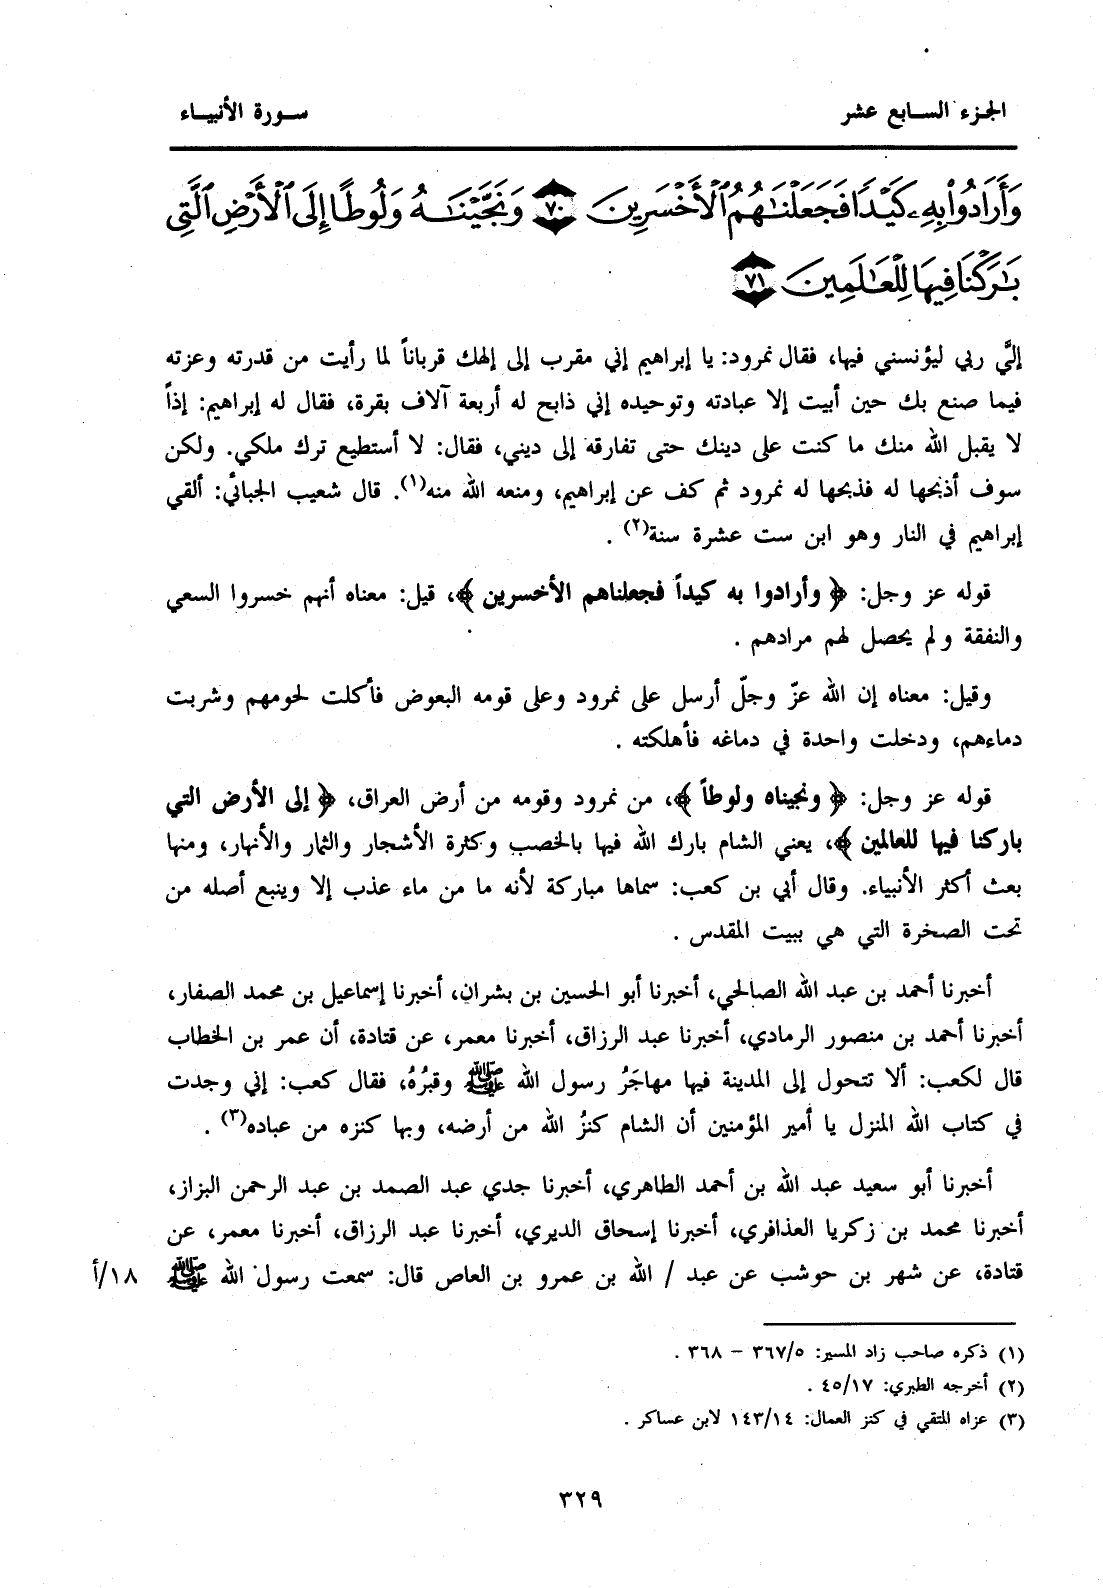 الجزء السابع عشر
سورة الأنبياء
وَأَرَادُوا۟ بِهِۦ كَيْدًا فَجَعَلْنَـٰهُمُ ٱلْأَخْسَرِينَ ٧٠ وَنَجَّيْنَـٰهُ وَلُوطًا إِلَى ٱلْأَرْضِ ٱلَّتِى
بَـٰرَكْنَا فِيهَا لِلْعَـٰلَمِينَ ٧١
إليَّ ربي ليؤنسني فيها، فقال نمرود: يا إبراهيم إني مقرب إلى إلهك قرباناً لما رأيت من قدرته وعزته
فيما صنع بك حين أبيت إلا عبادته وتوحيده إني ذابح له أربعة آلاف بقرة، فقال له إبراهيم: إذاً
لا يقبل الله منك ما كنت على دينك حتى تفارقه إلى ديني، فقال: لا أستطيع ترك ملكي. ولكن
سوف أذبحها له فذبحها له نمرود ثم كف عن إبراهيم، ومنعه الله منه(١). قال شعيب الجبائي: ألقي
إبراهيم في النار وهو ابن ست عشرة سنة(٢) .
قوله عز وجل: ﴿ وأرادوا به كيداً فجعلناهم الأخسرين ﴾، قيل: معناه أنهم خسروا السعي
والنفقة ولم يحصل لهم مرادهم .
وقيل: معناه إن الله عزّ وجلّ أرسل على نمرود وعلى قومه البعوض فأكلت لحومهم وشربت
دماءهم، ودخلت واحدة في دماغه فأهلكته .
قوله عز وجل: ﴿ ونجيناه ولوطاً ﴾، من نمرود وقومه من أرض العراق، ﴿ إلى الأرض التي
باركنا فيها للعالمين ﴾، يعني الشام بارك الله فيها بالخصب وكثرة الأشجار والثمار والأنهار، ومنها
بعث أكثر الأنبياء. وقال أبي بن كعب: سماها مباركة لأنه ما من ماء عذب إلا وينبع أصله من
تحت الصخرة التي هي ببيت المقدس .
أخبرنا أحمد بن عبد الله الصالحي، أخبرنا أبو الحسين بن بشران، أخبرنا إسماعيل بن محمد الصفار،
أخبرنا أحمد بن منصور الرمادي، أخبرنا عبد الرزاق، أخبرنا معمر، عن قتادة، أن عمر بن الخطاب
قال لكعب: ألا تتحول إلى المدينة فيها مهاجَرُ رسول الله ﷺ وقبرُهُ، فقال كعب: إني وجدت
في كتاب الله المنزل يا أمير المؤمنين أن الشام كنزُ الله من أرضه، وبها كنزه من عباده(٣) .
أخبرنا أبو سعيد عبد الله بن أحمد الطاهري، أخبرنا جدي عبد الصمد بن عبد الرحمن البزاز،
أخبرنا محمد بن زكريا العذافري، أخبرنا إسحاق الديري، أخبرنا عبد الرزاق، أخبرنا معمر، عن
قتادة، عن شهر بن حوشب عن عبد / الله بن عمرو بن العاص قال: سمعت رسول الله ﷺ ١٨/أ
(١) ذكره صاحب زاد المسير: ٣٦٧/٥ – ٣٦٨ .
(٢) أخرجه الطبري: ٤٥/١٧ .
(٣) عزاه المتقي في كنز العمال: ١٤٣/١٤ لابن عساكر .
٣٢٩